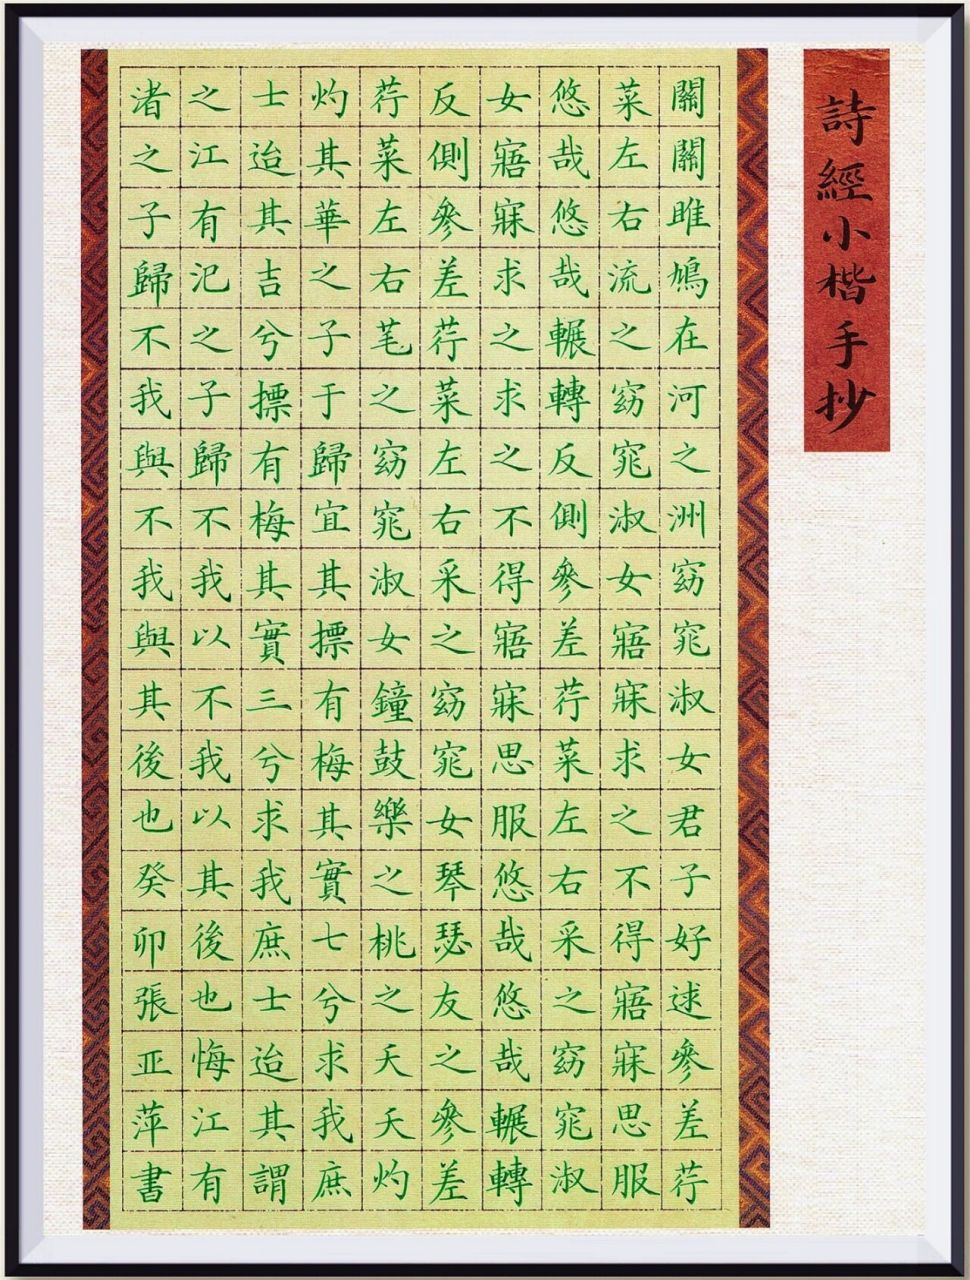 詩經小楷手抄
關關雎鳩在河之洲窈窕淑女君子好逑參差荇
菜左右流之窈窕淑女寤寐求之不得寤寐思服
悠哉悠哉輾轉反側參差荇菜左右采之窈窕淑
女寤寐求之求之不得寤寐思服悠哉悠哉輾轉
反側參差荇菜左右采之窈窕女琴瑟友之參差
荇菜左右芼之窈窕淑女鐘鼓樂之桃之夭夭灼
灼其華之子于歸宜其摽有梅其實七兮求我庶
士迨其吉兮摽有梅其實三兮求我庶士迨其謂
之江有汜之子歸不我以不我以其後也悔江有
渚之子歸不我與不我與其後也癸卯張亚萍書